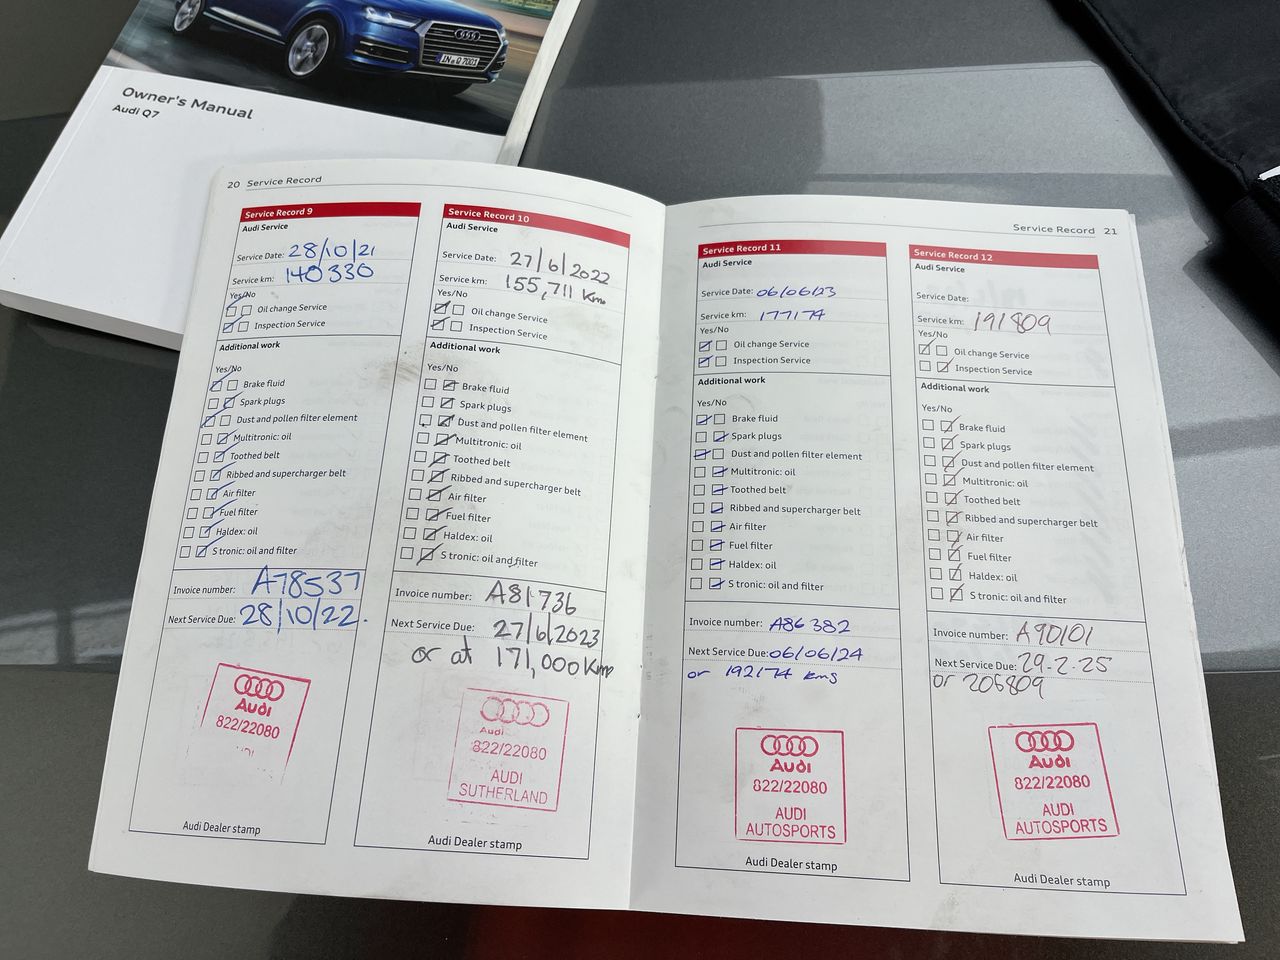 IN Q 7001
Owner's Manual
Audi Q7
20 Service Record
Service Record 9
Audi Service
Service Date: 28/10/21
Service km: 140330
Yes/No
Oil change Service
Inspection Service
Additional work
Yes/No
Brake fluid
Spark plugs
Dust and pollen filter element
Multitronic: oil
Toothed belt
Ribbed and supercharger belt
Air filter
Fuel filter
Haldex: oil
S tronic: oil and filter
Invoice number: A78537
Next Service Due: 28/10/22.
Audi
822/22080
Audi Dealer stamp
Service Record 10
Audi Service
Service Date: 27/6/2022
Service km: 155,711 Kms
Yes/No
Oil change Service
Inspection Service
Additional work
Yes/No
Brake fluid
Spark plugs
Dust and pollen filter element
Multitronic: oil
Toothed belt
Ribbed and supercharger belt
Air filter
Fuel filter
Haldex: oil
S tronic: oil and filter
Invoice number: A81736
Next Service Due: 27/6/2023
or at 171,000 Kms
Audi
822/22080
AUDI
SUTHERLAND
Audi Dealer stamp
Service Record 21
Service Record 11
Audi Service
Service Date: 06/06/23
Service km: 177174
Yes/No
Oil change Service
Inspection Service
Additional work
Yes/No
Brake fluid
Spark plugs
Dust and pollen filter element
Multitronic: oil
Toothed belt
Ribbed and supercharger belt
Air filter
Fuel filter
Haldex: oil
S tronic: oil and filter
Invoice number: A86382
Next Service Due: 06/06/24
or 192174 kms
Audi
822/22080
AUDI
AUTOSPORTS
Audi Dealer stamp
Service Record 12
Audi Service
Service Date:
Service km: 191809
Yes/No
Oil change Service
Inspection Service
Additional work
Yes/No
Brake fluid
Spark plugs
Dust and pollen filter element
Multitronic: oil
Toothed belt
Ribbed and supercharger belt
Air filter
Fuel filter
Haldex: oil
S tronic: oil and filter
Invoice number: A90101
Next Service Due: 29-2-25
or 206809
Audi
822/22080
AUDI
AUTOSPORTS
Audi Dealer stamp